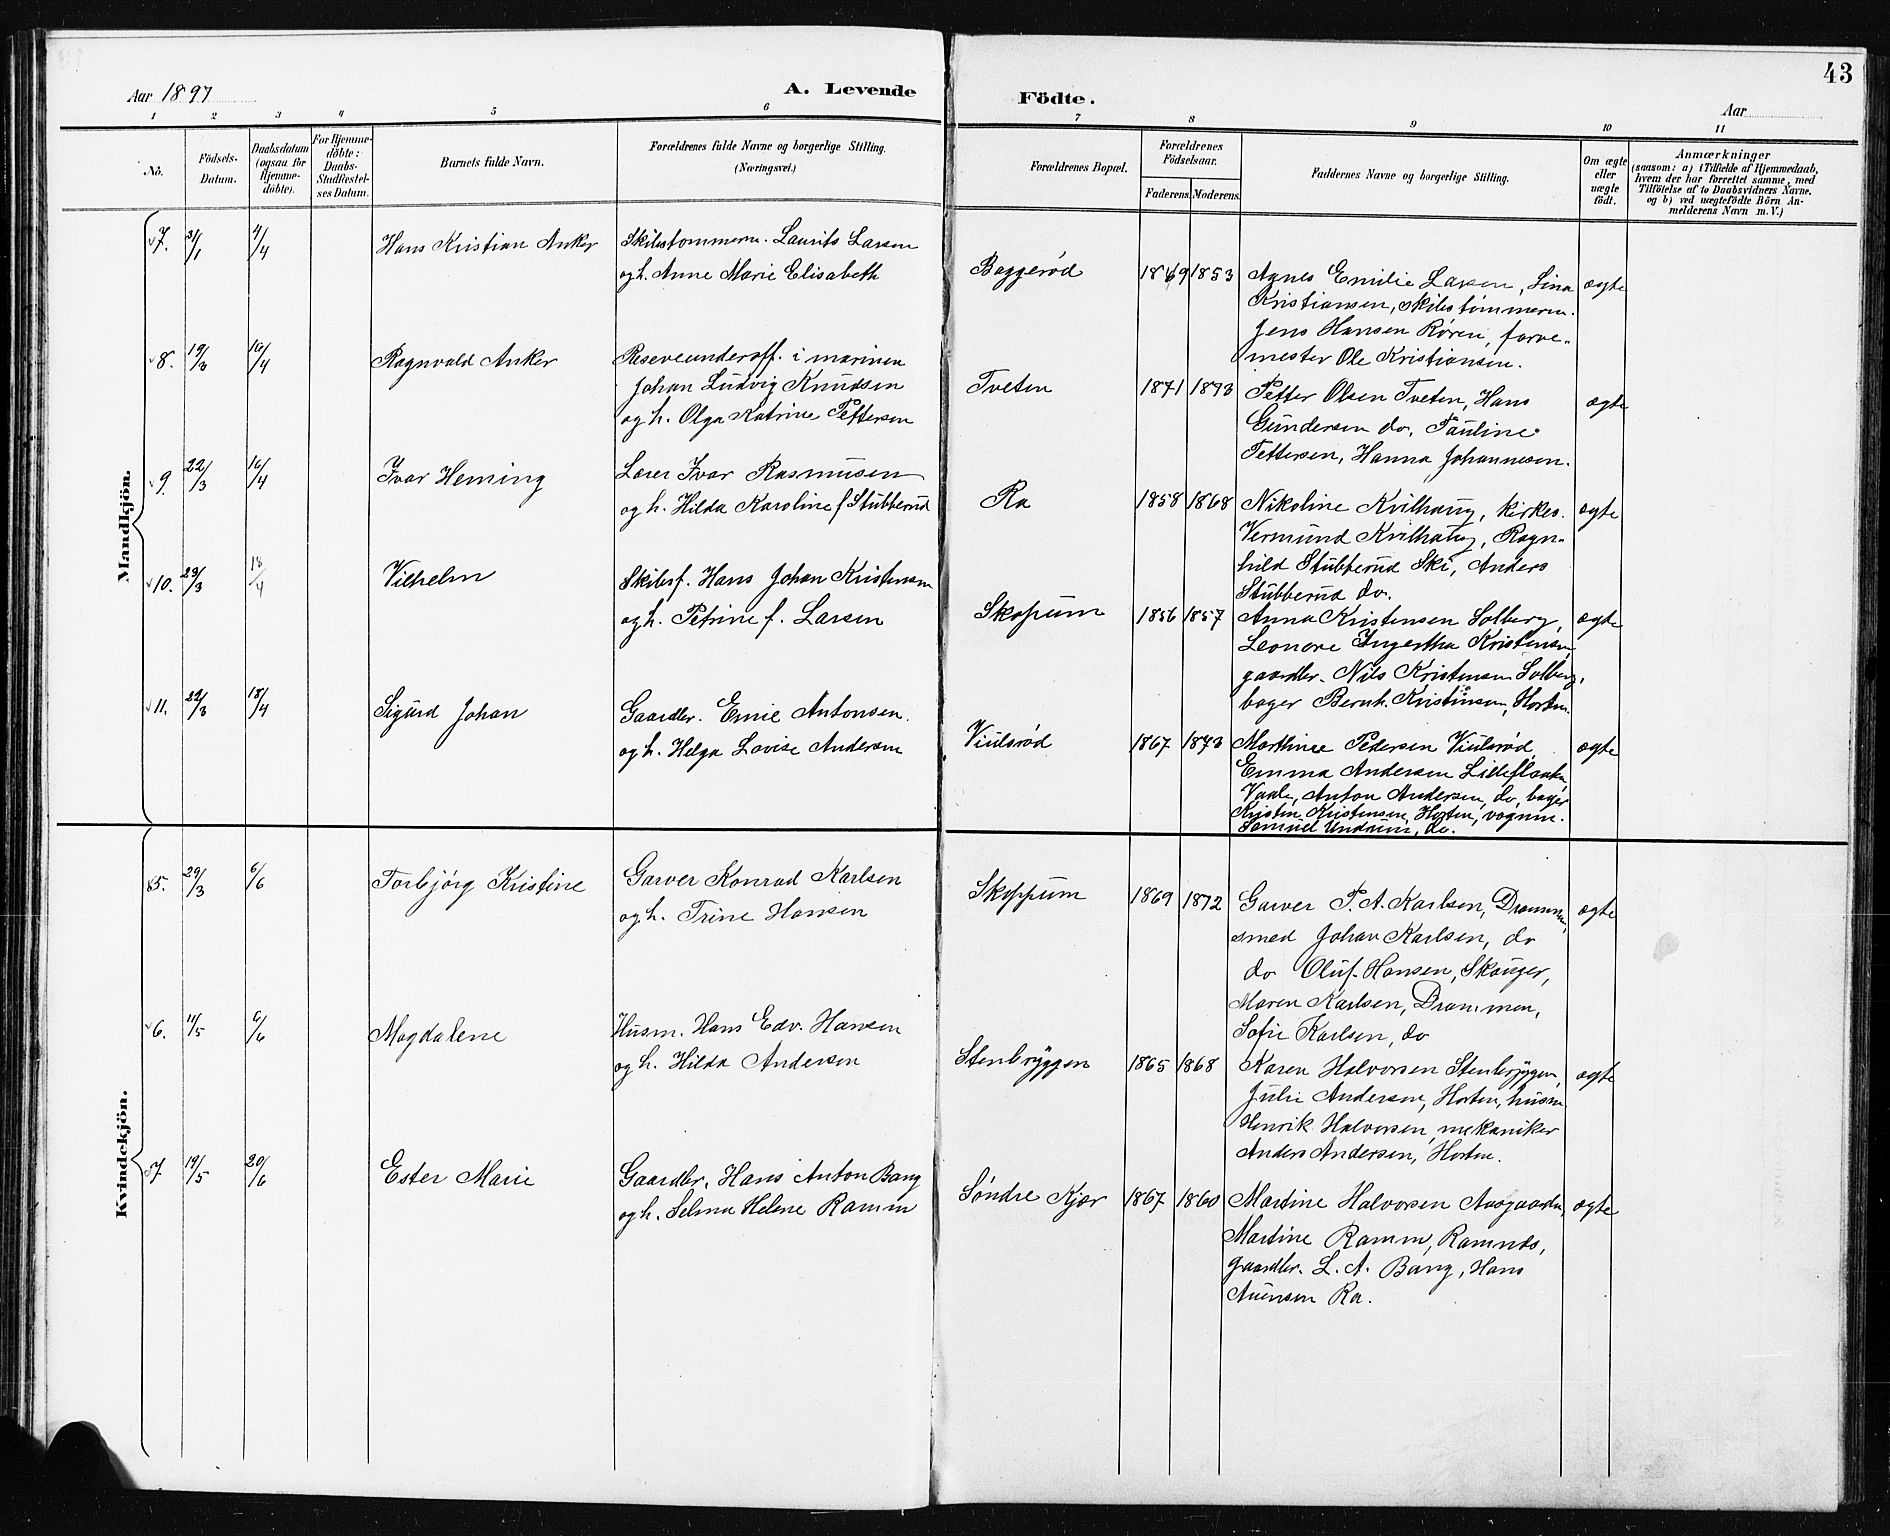 43
Aar 1897
A. Levende
Födte.
Aar
1 2 3 4 5 6 7 8 9 10 11
No.
Födsels-
Datum.
Daabsdatum
(ogsaa for
Hjemme-
döbte).
For Hjemme-
döbte:
Daabs-
Stadfæstel-
ses Datum.
Barnets fulde Navn.
Forældrenes fulde Navne og borgerlige Stilling.
(Næringsvei.)
Forældrenes Bopæl.
Forældrenes
Födselsaar.
Faderens. Moderens.
Faddernes Navne og borgerlige Stilling.
Om ægte
eller
uægte
födt.
Anmærkninger
(saasom: a) i Tilfælde af Hjemmedaab,
hvem der har forrettet samme, med
Tilföielse af to Daabsvidners Navne,
og b) ved uægtefödte Börn An-
melderens Navn m. V.)
Mandkjön.
7. 31/1 4/4 Hans Kristian Anker
Skibstømmerm. Laurits Larsen
og h. Anne Marie Elisabeth
Baggerød 1849 1853
Agnes Emilie Larsen, Lina
Kristiansen, skibstømmerm.
Jens Hansen Røren, farve-
mester Ole Kristiansen.
ægte
8. 19/3 16/4 Ragnvald Anker
Reserveunderoff. i marinen
Johan Ludvig Knudsen
og h. Olga Katrine Pettersen
Tveten 1871 1873
Petter Olsen Tveten, Hans
Gundersen do, Pauline
Pettersen, Hanna Johannesen.
ægte
9. 22/3 16/4 Ivar Heming
Lærer Ivar Rasmusen
og h. Hilda Karoline f. Stubberud
Ra 1858 1868
Nikoline Kvilhaug, kirkes.
Vermund Kvilhaug, Ragn-
hild Stubberud Ski, Anders
Stubberud do.
ægte
10. 23/3 18/4 Vilhelm
Skibsf. Hans Johan Kristensen
og h. Petrine f. Larsen
Skopum 1856 1857
Anna Kristensen Solberg,
Leonore Ingertha Kristensen,
gaardbr. Nils Kristensen Solberg,
bager Bernh. Kristensen, Horten.
ægte
11. 22/3 18/4 Sigurd Johan
Gaardbr. Emil Antonsen
og h. Helga Lovise Andersen
Viulsrød 1867 1873
Marthine Pedersen Viulsrød,
Emma Andersen
Vaale, Anton Andersen, do, bager
Kristen Kristensen, Horten, vognm.
Samuel Undrum, do.
ægte
Kvindekjön.
5. 29/3 6/6 Torbjørg Kristine
Garver Konrad Karlsen
og h. Trine Hansen
Skoppum 1869 1872
Garver P. A. Karlsen, Drammen,
smed Johan Karlsen, do
do Oluf Hansen, Skouger,
Maren Karlsen, Drammen,
Sofie Karlsen, do
ægte
6. 11/5 6/6 Magdalene
Husm. Hans Edv. Hansen
og h. Hilda Andersen
Stenbryggen 1865 1868
Karen Halvorsen Stenbryggen,
Julie Andersen, Horten, husm
Henrik Halvorsen, mekaniker
Anders Andersen, Horten.
ægte
7. 19/5 20/6 Ester Marie
Gaardbr. Hans Anton Bang
og h. Selma Helene Ramm
Søndre Kjær 1867 1860
Martine Halvorsen Aasgaarden,
Martine Ramm, Ramnes,
gaardbr. L. A. Bang, Hans
Auensen Ra.
ægte